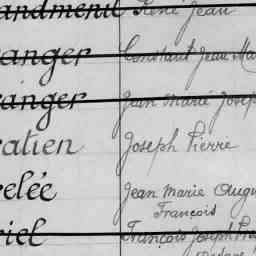 andmenil René Jean
anger Constant Jean Ma
anger Jean Marie Josep
atien Joseph Pierre
elée Jean Marie Augu
François
riel François Joseph